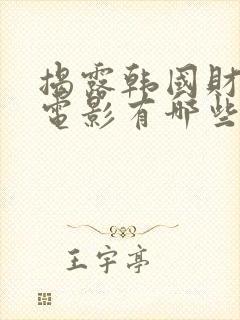 揭露韩国财
电影有哪些
王宇亭